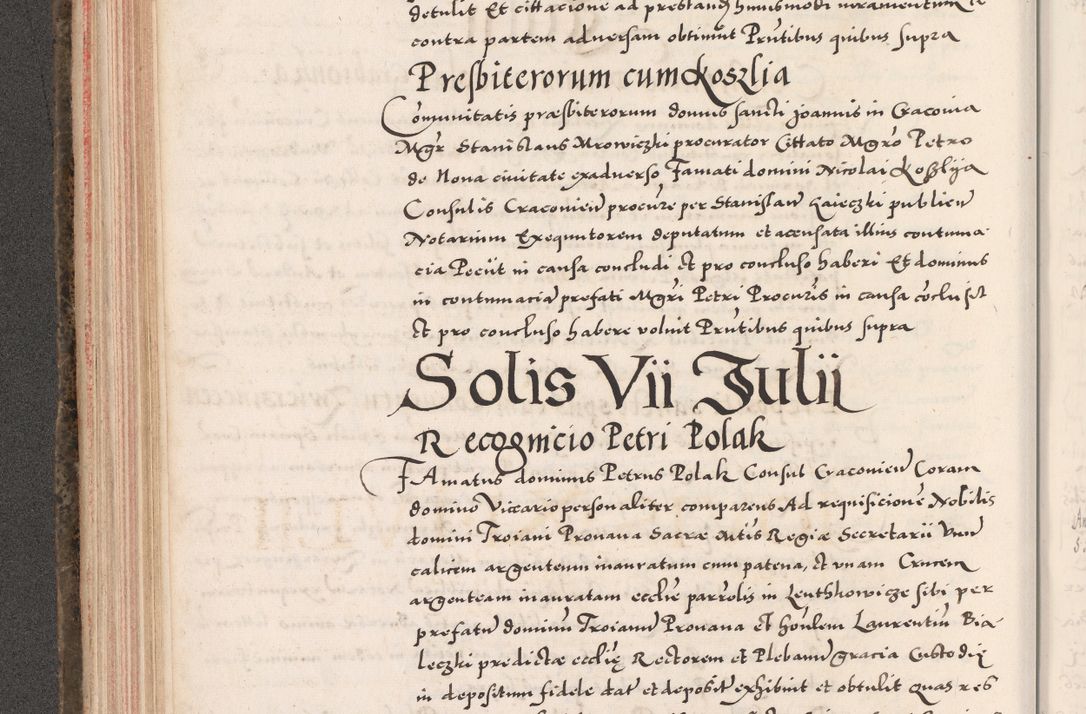 detulit Et cittacione ad prestand huiusmodi iuramentum
contra partem adversam obtinuit Prntibus quibus supra
Presbiterorum cum Koszlia
Comunitatis præsbiterorum domus sancti Joannis in Cracovia
Mgr Stanislaus Mrowiczki procurator Cittato Mgro Petro
de Nova civitate exadverso Famati domini Nicolai Koszlija
Consulis Cracovien procure per Stanislaw Zaieczki publicu
Notarium Exequutorem deputatum et acensata illius contuma
cia Peciit in causa concludi et pro concluso haberi Et dominus
in contumacia prefati Mgri Petri Procuris in causa coclusit
Et pro concluso habere voluit Prntibus quibus supra
Solis Vii Julii
Recognicio Petri Polak
FAmatus dominus Petrus Polak Consul Cracovien Coram
domino Vicario personaliter comparens Ad requisicione Nobilis
domini Troiani Provana Sacræ Mtis Regiæ Secretarii Unu
calicem argenteum inauratum cum patena, et vnam Crucem
argenteam inauratam ecclie parrolis in Lenthkowicze sibi per
prefatu dominu Troianu Provana et honlem Laurentiu Bia
leczki predictæ ecclię Rectorem et Plebanu gracia Custodię
in depositum fidele dat et deposit exhibuit et obtulit quas res